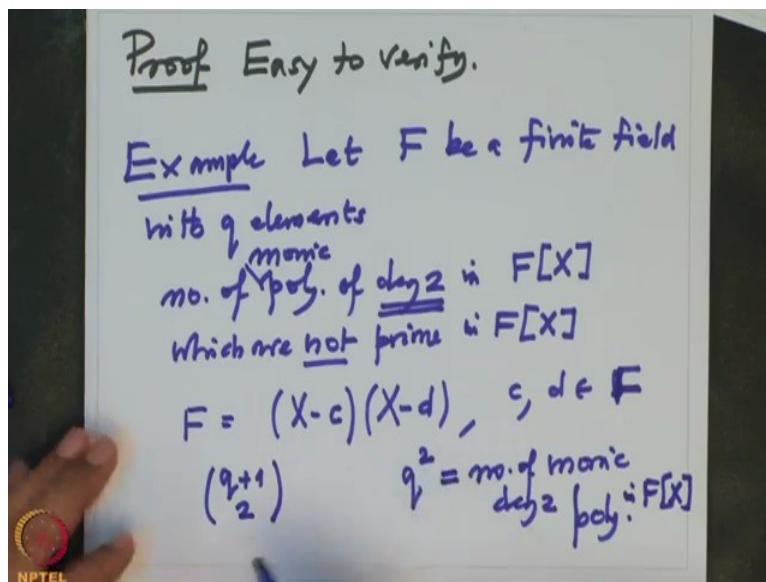 Proof Easy to verify.
Example Let F be a finite field
with q elements
monic
no. of poly. of deg 2 in F[X]
which are not prime in F[X]
F = (X-c)(X-d), c, d ∈ F
(q+1 2) q² = no. of monic
deg 2 poly. in F[X]
NPTEL